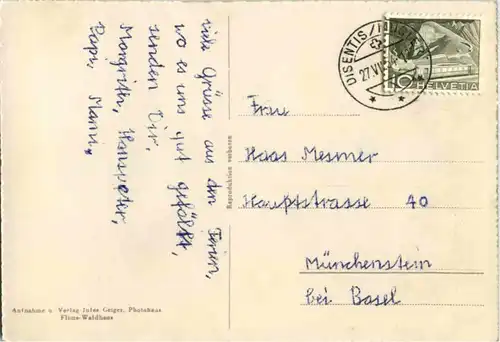 viele Grüsse aus den Ferien,
wo es uns gut gefällt,
senden Dir,
Margrith, Hanspeter,
Papi, Mami.
DISENTIS/MUSTÉR
27.VII.
10
HELVETIA
Frau
Haas Mesmer
Hauptstrasse 40
Münchenstein
bei Basel
Reproduktion verboten
Aufnahme u. Verlag Jules Geiger, Photohaus
Flims-Waldhaus